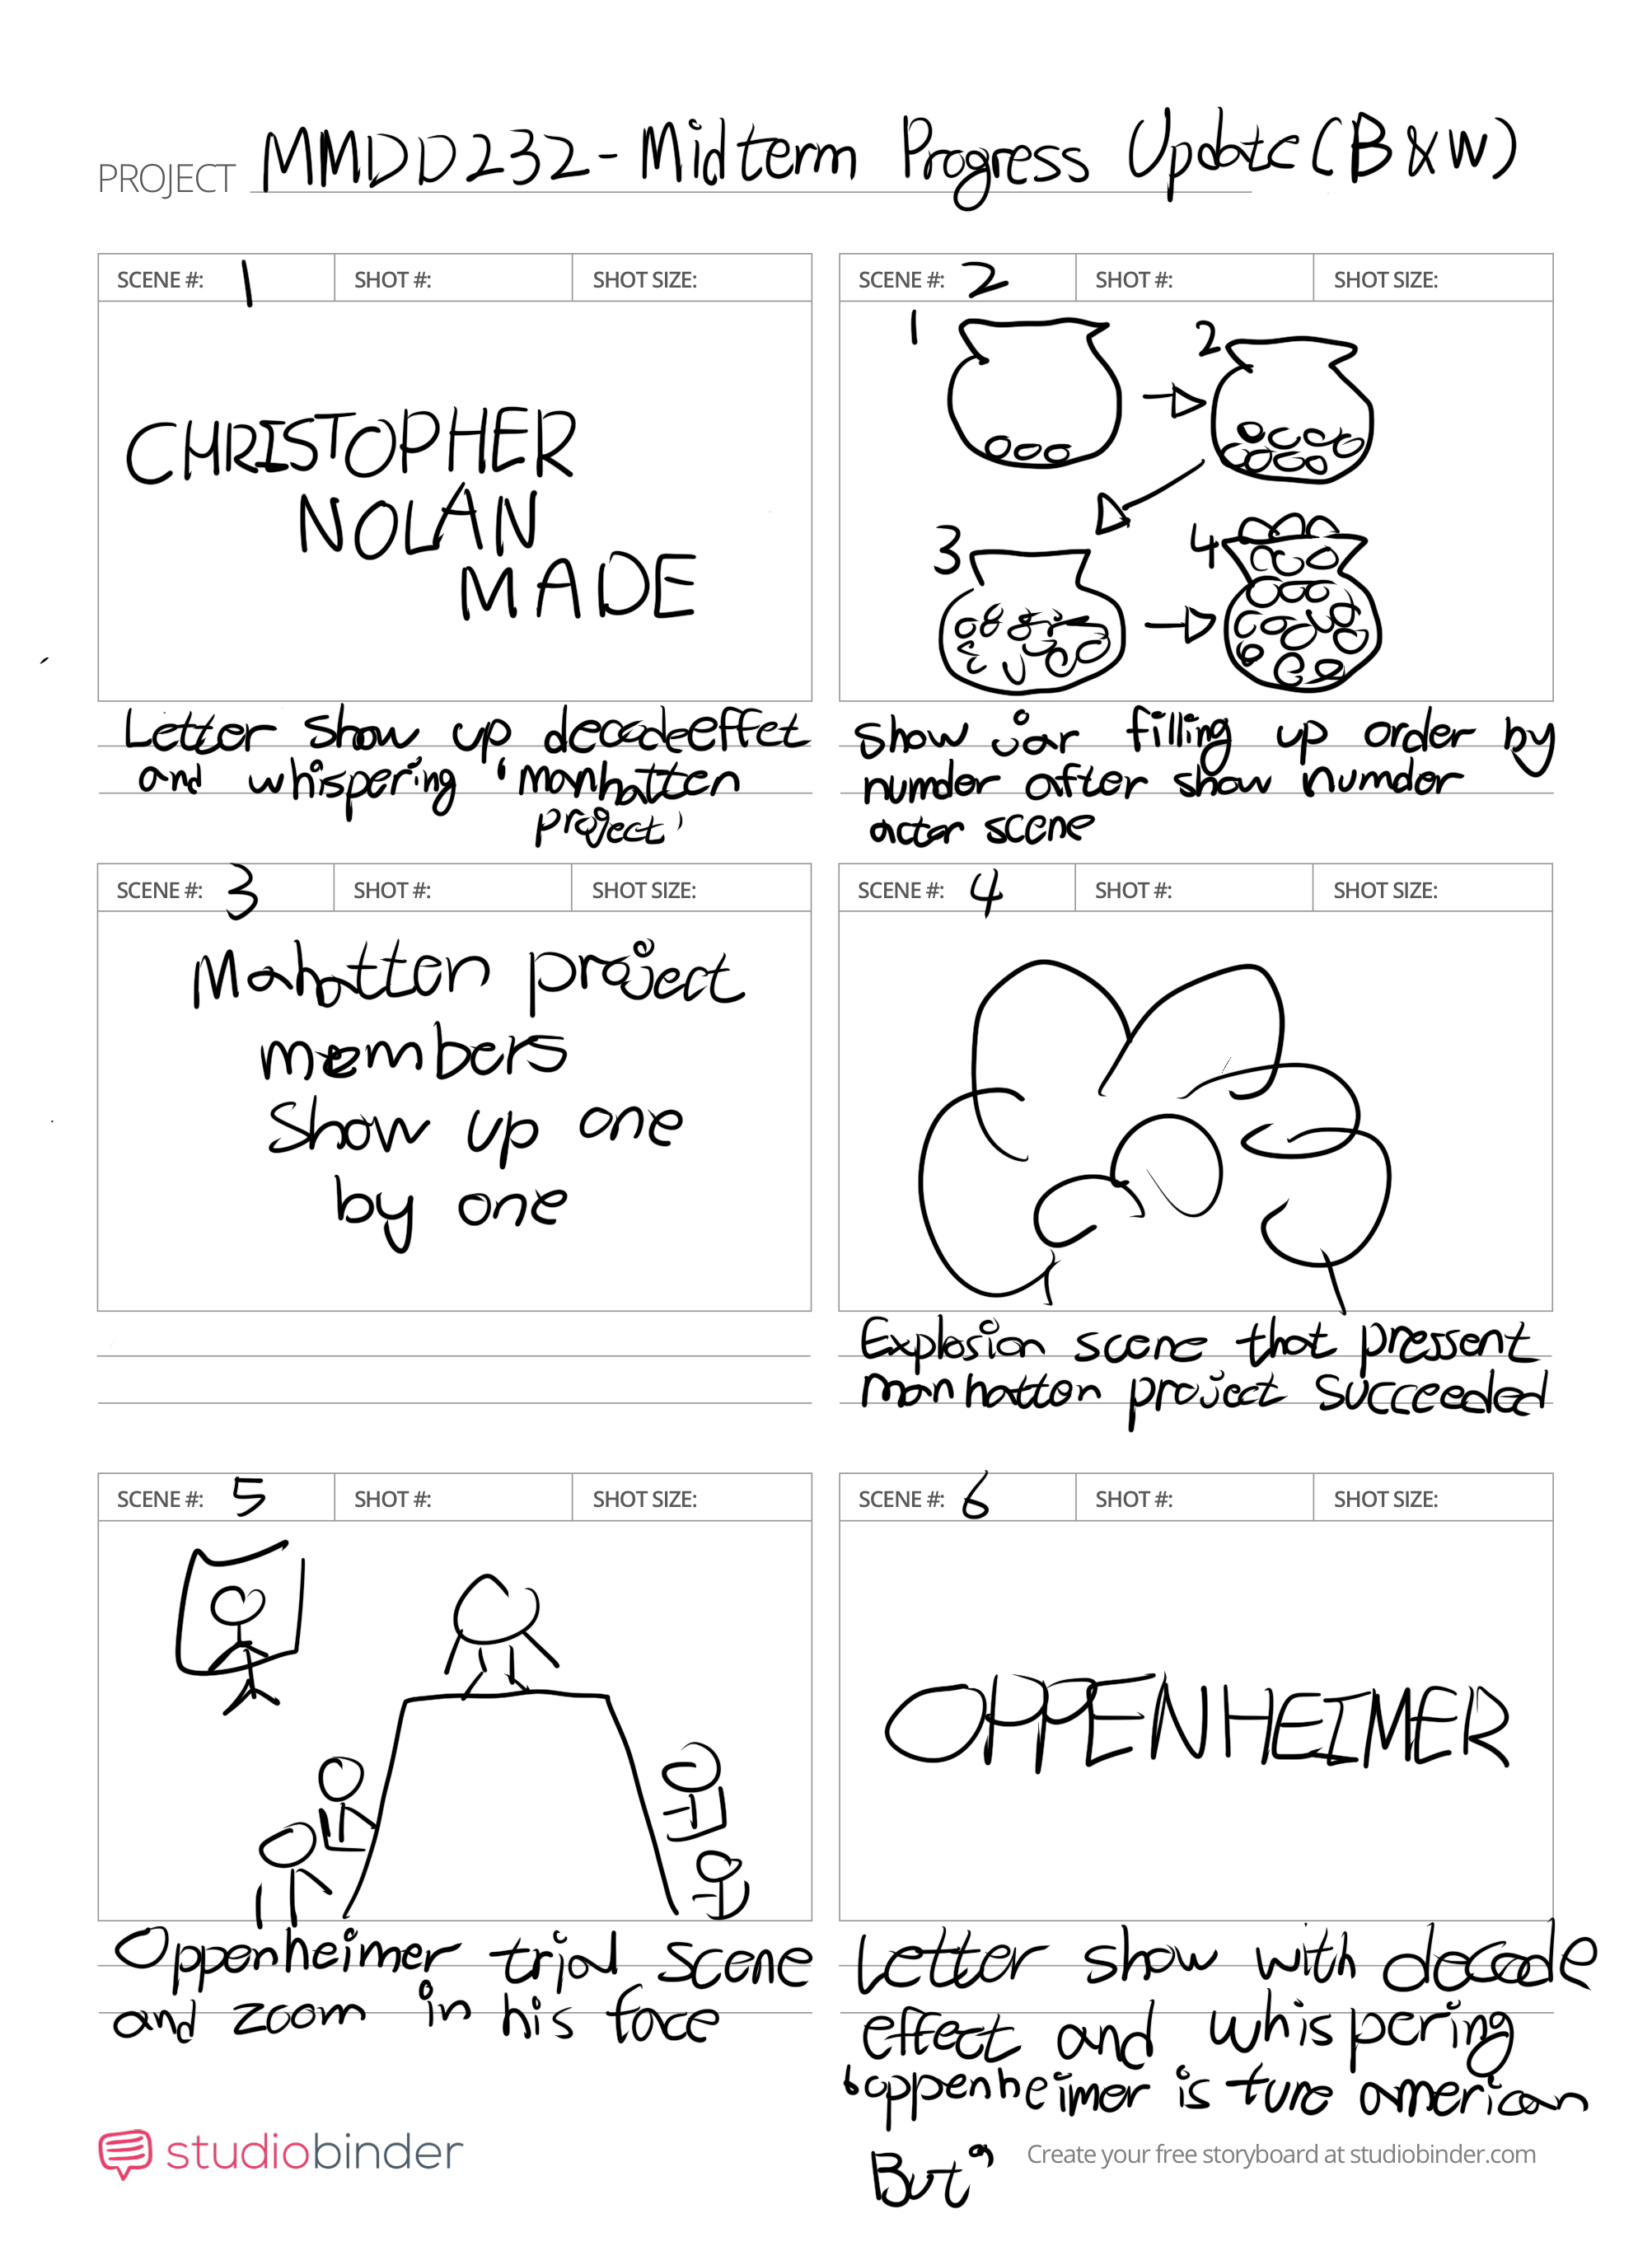 PROJECT MMDD232-Midterm Progress Update (B&W)
SCENE #: 1 SHOT #: SHOT SIZE:
CHRISTOPHER
NOLAN
MADE
Letter show up decodeeffet
and whispering 'manhatten
project'
SCENE #: 2 SHOT #: SHOT SIZE:
1
2
3
4
show jar filling up order by
numder after show numdor
actor scene
SCENE #: 3 SHOT #: SHOT SIZE:
Mahatten project
members
Show up one
by one
SCENE #: 4 SHOT #: SHOT SIZE:
Explosion scene that pressent
manhatton project succeeded
SCENE #: 5 SHOT #: SHOT SIZE:
Oppenheimer trial scene
and zoom in his face
SCENE #: 6 SHOT #: SHOT SIZE:
OPPENHEIMER
Letter show with decode
effect and whispering
"oppenheimer is ture american
But"
studiobinder
Create your free storyboard at studiobinder.com